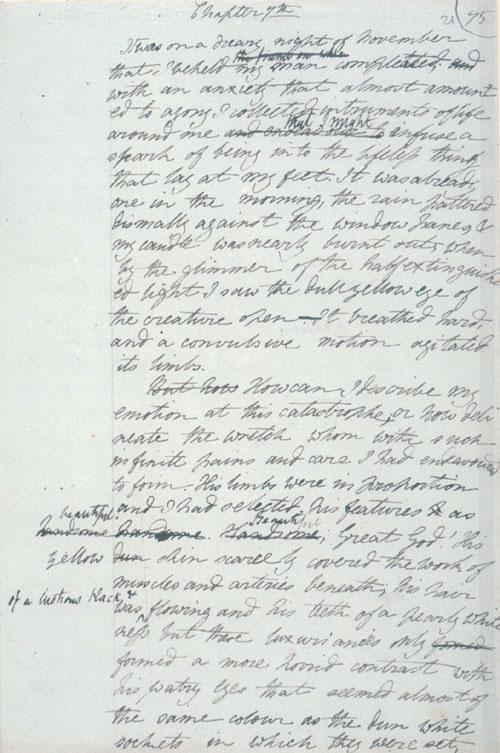 Chapter 7th
21 95
It was on a dreary night of November
the frame on whic
that I beheld my man compleated; and
with an anxiety that almost amount
ed to agony, I collected instruments of life
that I might
around me and endeavour to infuse a
spark of being into the lifeless thing
that lay at my feet. It was already
one in the morning, the rain pattered
dismally against the window panes, &
my candle was nearly burnt out, when
by the glimmer of the half extinguish
ed light I saw the dull yellow eye of
the creature open — It breathed hard,
and a convulsive motion agitated
its limbs.
But how How can I describe my
emotion at this catastrophe, or how deli
neate the wretch whom with such
infinite pains and care I had endeavoured
to form. His limbs were in proportion
and I had selected his features as
beautiful.
handsome handsome. Handsome; Great God! His
Beautiful
yellow dun skin scarcely covered the work of
muscles and arteries beneath; his hair
of a lustrous black, &
was flowing and his teeth of a pearly white
ness but these luxuriances only formed
formed a more horrid contrast with
his watry eyes that seemed almost of
the same colour as the dun white
sockets in which they were set,